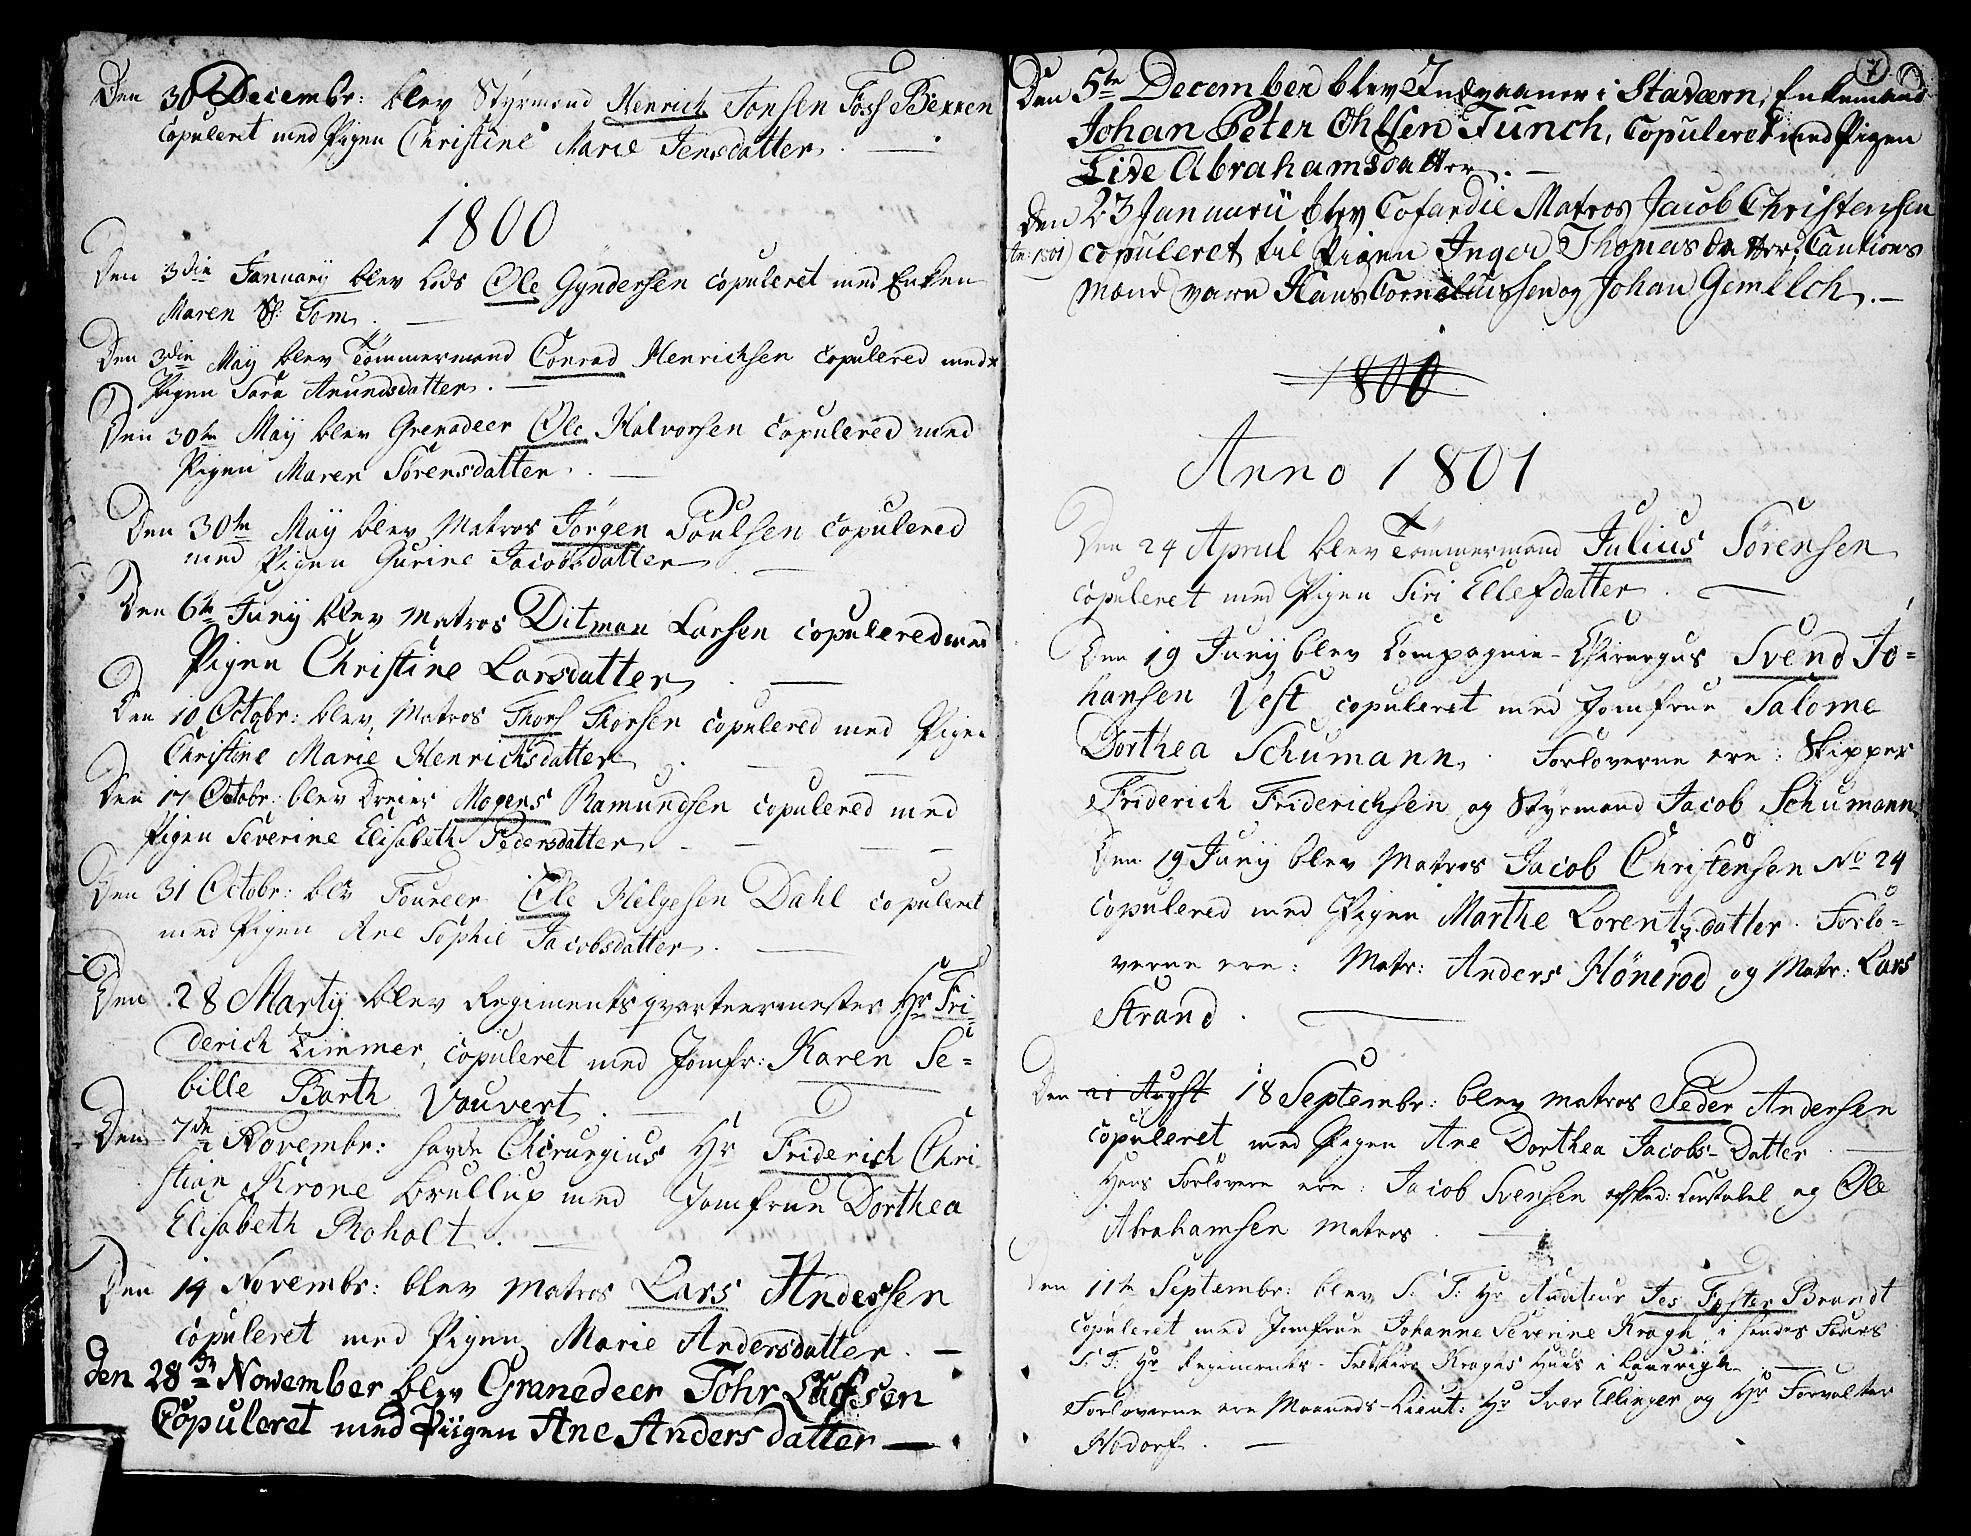 Den 30 Decembr: blev Styrmand Henrich Jonsen Foss Bexren
Copuleret med Pigen Christine Marie Jensdatter. —
1800
Den 3die January blev Lods Ole Gyndersen copuleret med Enken
Maren Tom. —
Den 3die May blev Tømmermand Conrad Henrichsen copulered med
Pigen Sara Amundsdatter. —
Den 30te May blev Grenadeer Ole Halvorsen copulered med
Pigen Maren Sørensdatter. —
Den 30te May blev Matros Jørgen Poulsen copulered
med Pigen Gurine Jacobsdatter. —
Den 6te Juny blev Matros Ditman Larsen copulered med
Pigen Christine Larsdatter. —
Den 10 Octobr: blev Matros Thors Thorsen copulered med Pigen
Christine Marie Henrichsdatter. —
Den 17 Octobr: blev Dreier Mogens Ramundsen copulered med
Pigen Severine Elisabeth Pedersdatter. —
Den 31 Octobr: blev Foureer Ole Helgesen Dahl copuleret
med Pigen Ane Sophie Jacobsdatter. —
Den 28 Marty blev Regimentsqvarteermester Hr Fri-
derich Zimmer, copuleret med Jomfr: Karen Se=
bille Barth Vauvert. —
Den 7de Novembr: havde Chirurgius Hr Friderich Chri
stian Krone Brullup med Jomfrue Dorthea
Elisabeth Roholt. —
Den 14 Novembr: blev Matros Lars Andersen
copuleret med Pigen Marie Andersdatter. —
Den 28de November blev Granedeer Tohr Olufsen
Copuleret med Piigen Ane Anders datter —
7
Den 5te December blev Indvaaner i Staværn, Enkemand
Johan Peter Ohlsen Funch, Copuleret med Pigen
Live Abrahamsdatter. —
Den 23 Januarii blev Cofardie Matros Jacob Christensen
(1801) copuleret til Pigen Inger Thomasdatter, Cautions
mænd vare Hans Corneliussen og Johan Gemelch. —
1800
Anno 1801
Den 24 April blev Tømmermand Julius Sørensen
copuleret med Pigen Siri Ellefdatter. —
Den 19 Juny blev Compagnie-Chirurgus Svend Jo=
hansen Vest copuleret med Jomfrue Salome
Dorthea Schumann. Forloverne ere: Skipper
Friderich Friderichsen og Styrmand Jacob Schumann
Den 19 Juny blev Matros Jacob Christensen No 24
copulered med Pigen Marthe Lorentzdatter. Forlo=
verne ere: Matr: Anders Hönerod og Matr: Lars
Strand. —
Den 21 Augst 18 Septembr: blev Matros Peder Andersen
copuleret med Pigen Ane Dorthea Jacobs-Datter. —
Hans Forlovere ere: Jacob Svensen afsked: Constabel og Ole
Abrahamsen Matros. —
Den 11te Septembr: blev S: T: Hr Auditeur Jes Brandt
copuleret med Jomfrue Johanne Severine Kragh, i hendes Faders
S: T: Hr Regiments-Feltskiær Kraghs Huus i Laurvigh —
Forloverne ere Maaneds-Lieut: Hr Iver Ellinger og Hr Forvalter
Hodorf. —